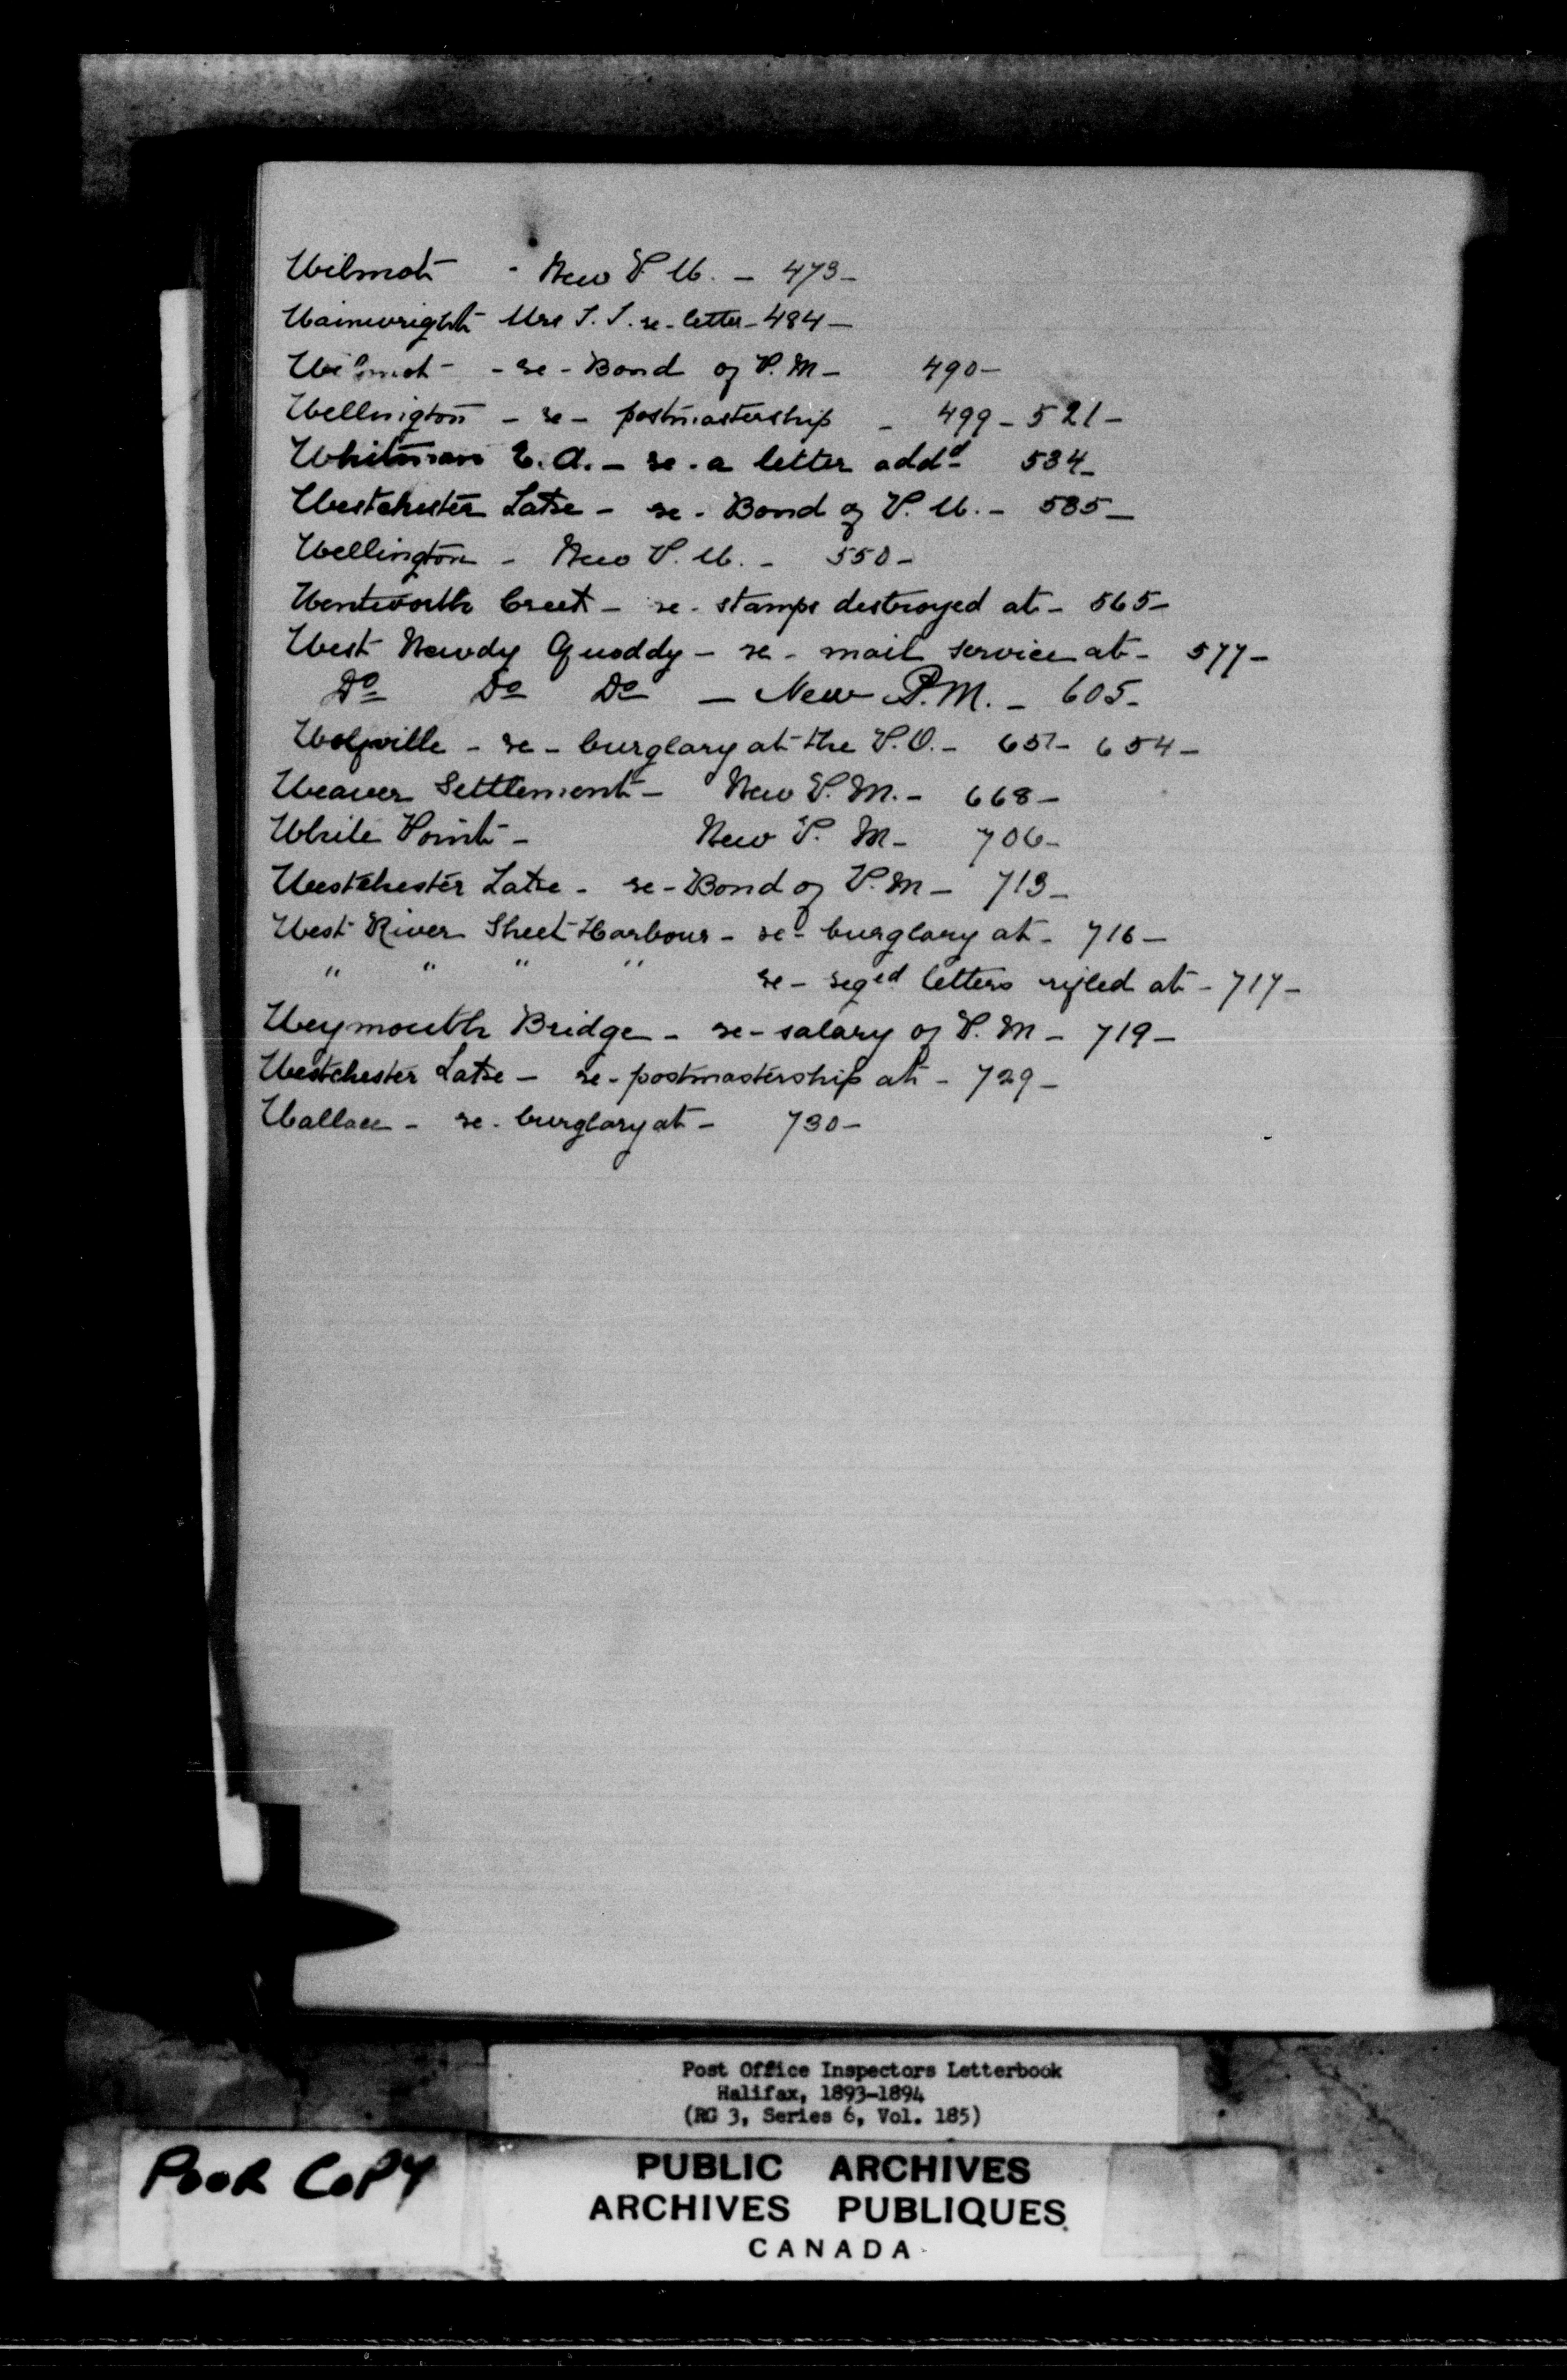 Wilmot - New P.M. - 473 -
Wainwright Mrs T. T. re - letter - 484 -
Wilmot - - re - Bond of P.M - 490 -
Wellington - re - postmastership - 499 - 521 -
Whitman E. A. - re - a letter addd 534 -
Westchester Lake - re - Bond of P.M. - 535 -
Wellington - New P.M. - 550 -
Wentworth Creek - re - stamps destroyed at - 565 -
West Newdy Quoddy - re - mail service at - 577 -
Do Do Do - New P.M. - 605 -
Wolfville - re - burglary at the P.O. - 651 - 654 -
Weaver Settlement - New P.M. - 668 -
White Point - New P. M - 706 -
Westchester Lake - re - Bond of P.M - 713 -
West River Sheet Harbour - re - burglary at - 716 -
" " " " re - reged letters rifled at - 717 -
Weymouth Bridge - re - salary of P.M - 719 -
Westchester Lake - re - postmastership at - 729 -
Wallace - re - burglary at - 730 -
Post Office Inspectors Letterbook
Halifax, 1893-1894
(RG 3, Series 6, Vol. 185)
POOR COPY
PUBLIC ARCHIVES
ARCHIVES PUBLIQUES
CANADA